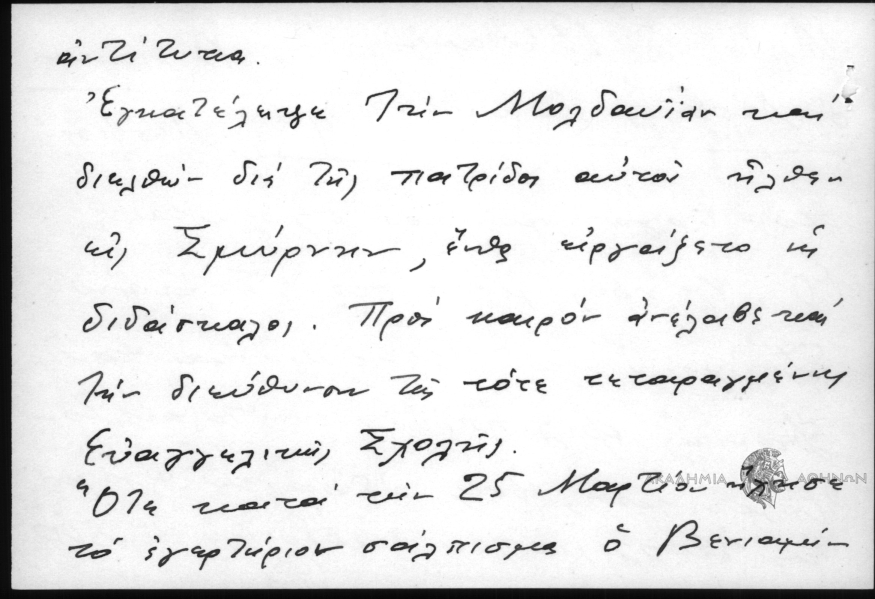 ἀντίτυπα.
Ἐγκατέλειψε τὴν Μολδαυΐαν καὶ
διελθὼν διὰ τῆς πατρίδος αὐτοῦ ἦλθεν
εἰς Σμύρνην, ἔνθα εἰργάζετο ὡς
διδάσκαλος. Πρὸς καιρὸν ἀνέλαβε καὶ
τὴν διεύθυνσιν τῆς τότε τεταραγμένης
Εὐαγγελικῆς Σχολῆς.
Ὅτε κατὰ τὴν 25 Μαρτίου ἤχησε
τὸ ἐγερτήριον σάλπισμα ὁ Βενιαμὶν
ΑΚΑΔΗΜΙΑ ΑΘΗΝΩΝ